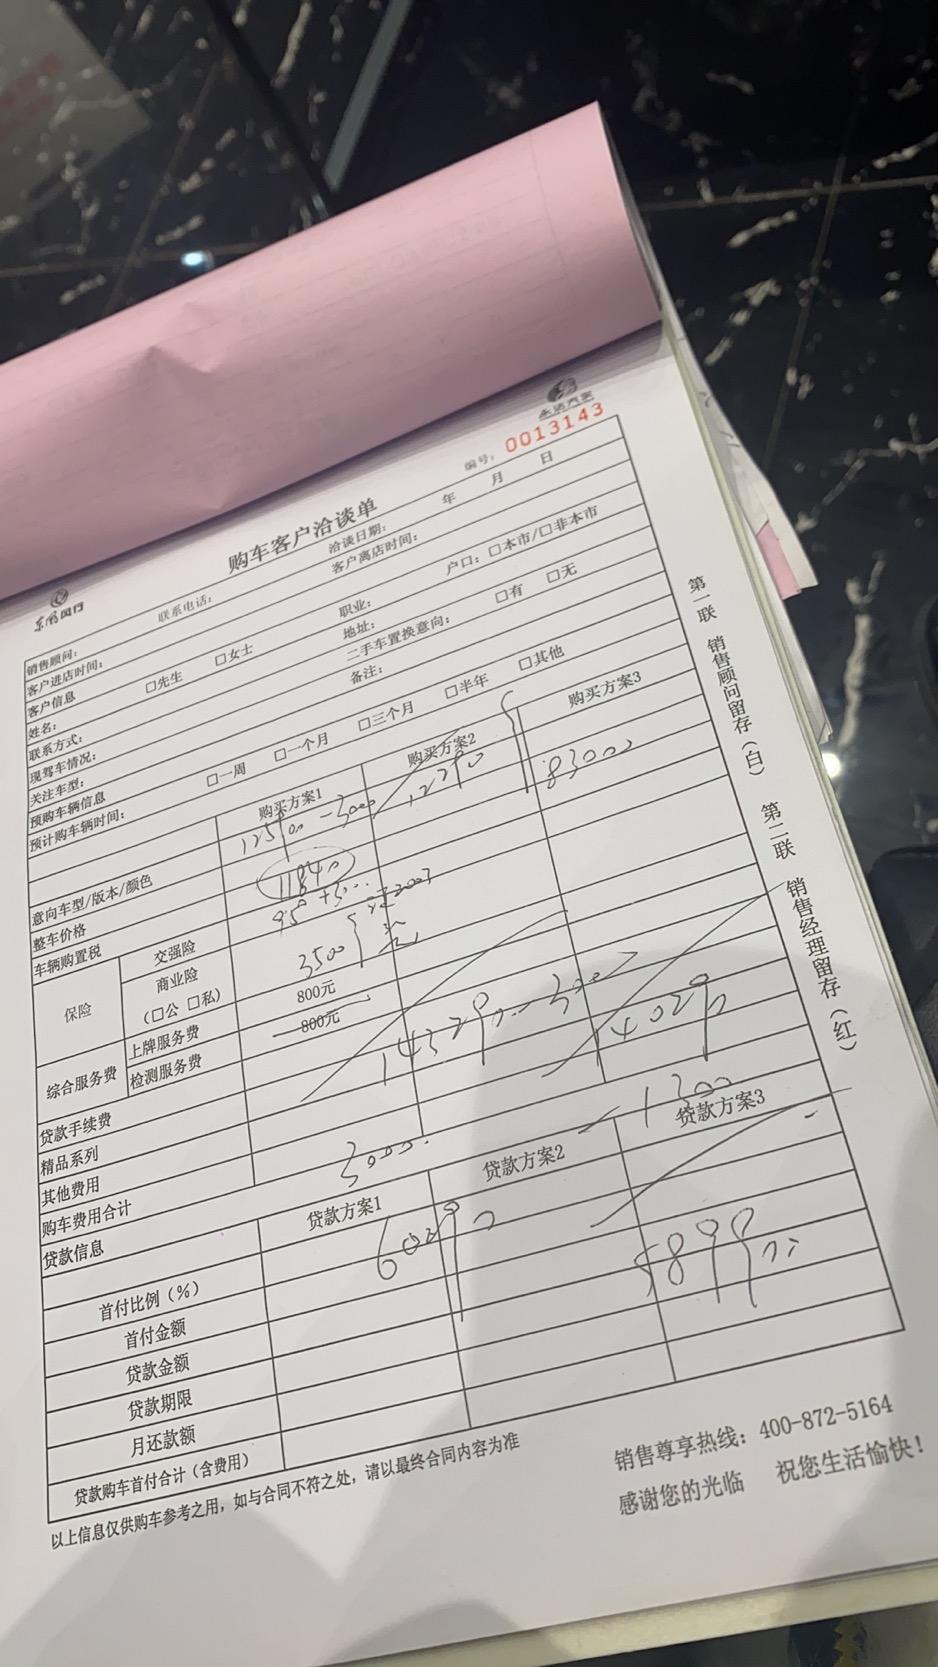 永达汽车
编号：0013143
东风风行
购车客户洽谈单
销售顾问：
联系电话：
洽谈日期： 年 月 日
客户进店时间：
客户离店时间：
客户信息
姓名： □先生 □女士
职业：
户口：□本市/□非本市
联系方式：
地址：
现驾车情况：
二手车置换意向： □有 □无
关注车型：
备注：
预购车辆信息
预计购车辆时间： □一周 □一个月 □三个月 □半年 □其他
购买方案1 购买方案2 购买方案3
意向车型/版本/颜色
83000
整车价格
车辆购置税
保险
交强险
商业险
（□公 □私）
3500
综合服务费
上牌服务费 800元
检测服务费 800元
贷款手续费
精品系列
其他费用
购车费用合计
3000
1300
贷款信息 贷款方案1 贷款方案2 贷款方案3
首付比例（%）
首付金额
贷款金额
贷款期限
月还款额
贷款购车首付合计（含费用）
以上信息仅供购车参考之用，如与合同不符之处，请以最终合同内容为准
销售尊享热线：400-872-5164
感谢您的光临 祝您生活愉快！
第一联 销售顾问留存（白） 第二联 销售经理留存（红）